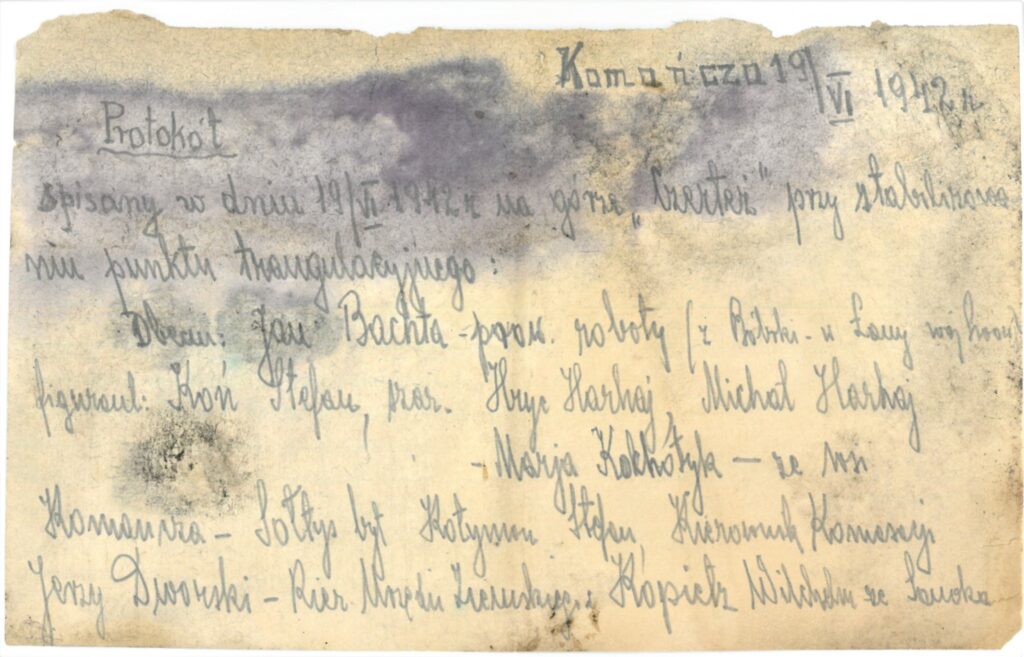 Komańcza 19/VI 1942 r
Protokół
spisany w dniu 19/VI 1942 r na górze „Czerteż" przy stabilizowa
niu punktu triangulacyjnego:
Obecni: Jan Bachta - prow. roboty (z Bóbrki - n Sanu
figurant: Koń Stefan, Hryc Harhaj, Michał Harhaj
- Marja Kochołyk – ze wsi
Komańcza – Sołtys był Kotyman Stefan Kierownik Komasacji
Jerzy Dworski – Kier. Urzędu Ziemskiego: Kopietz Wilchelm ze Sanoka